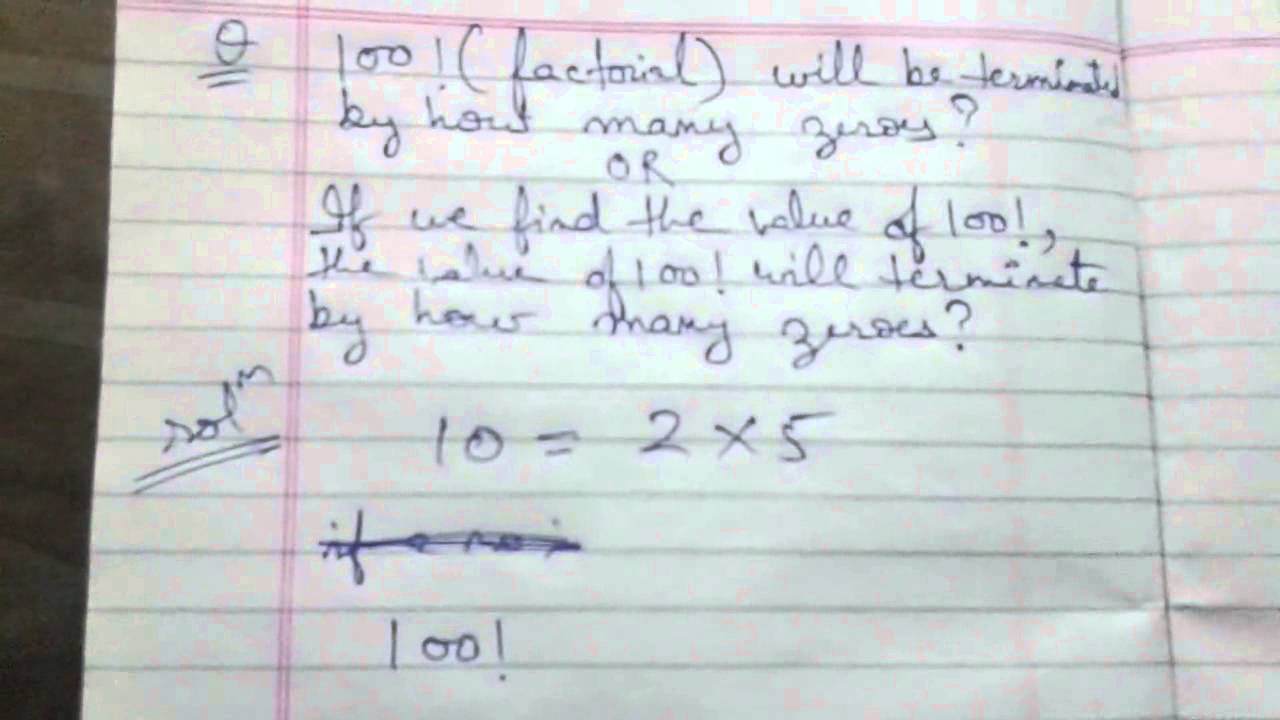 Q 100! (factorial) will be terminated
by how many zeroes?
OR
If we find the value of 100!,
the value of 100! will terminate
by how many zeroes?
solⁿ 10 = 2 × 5
100!